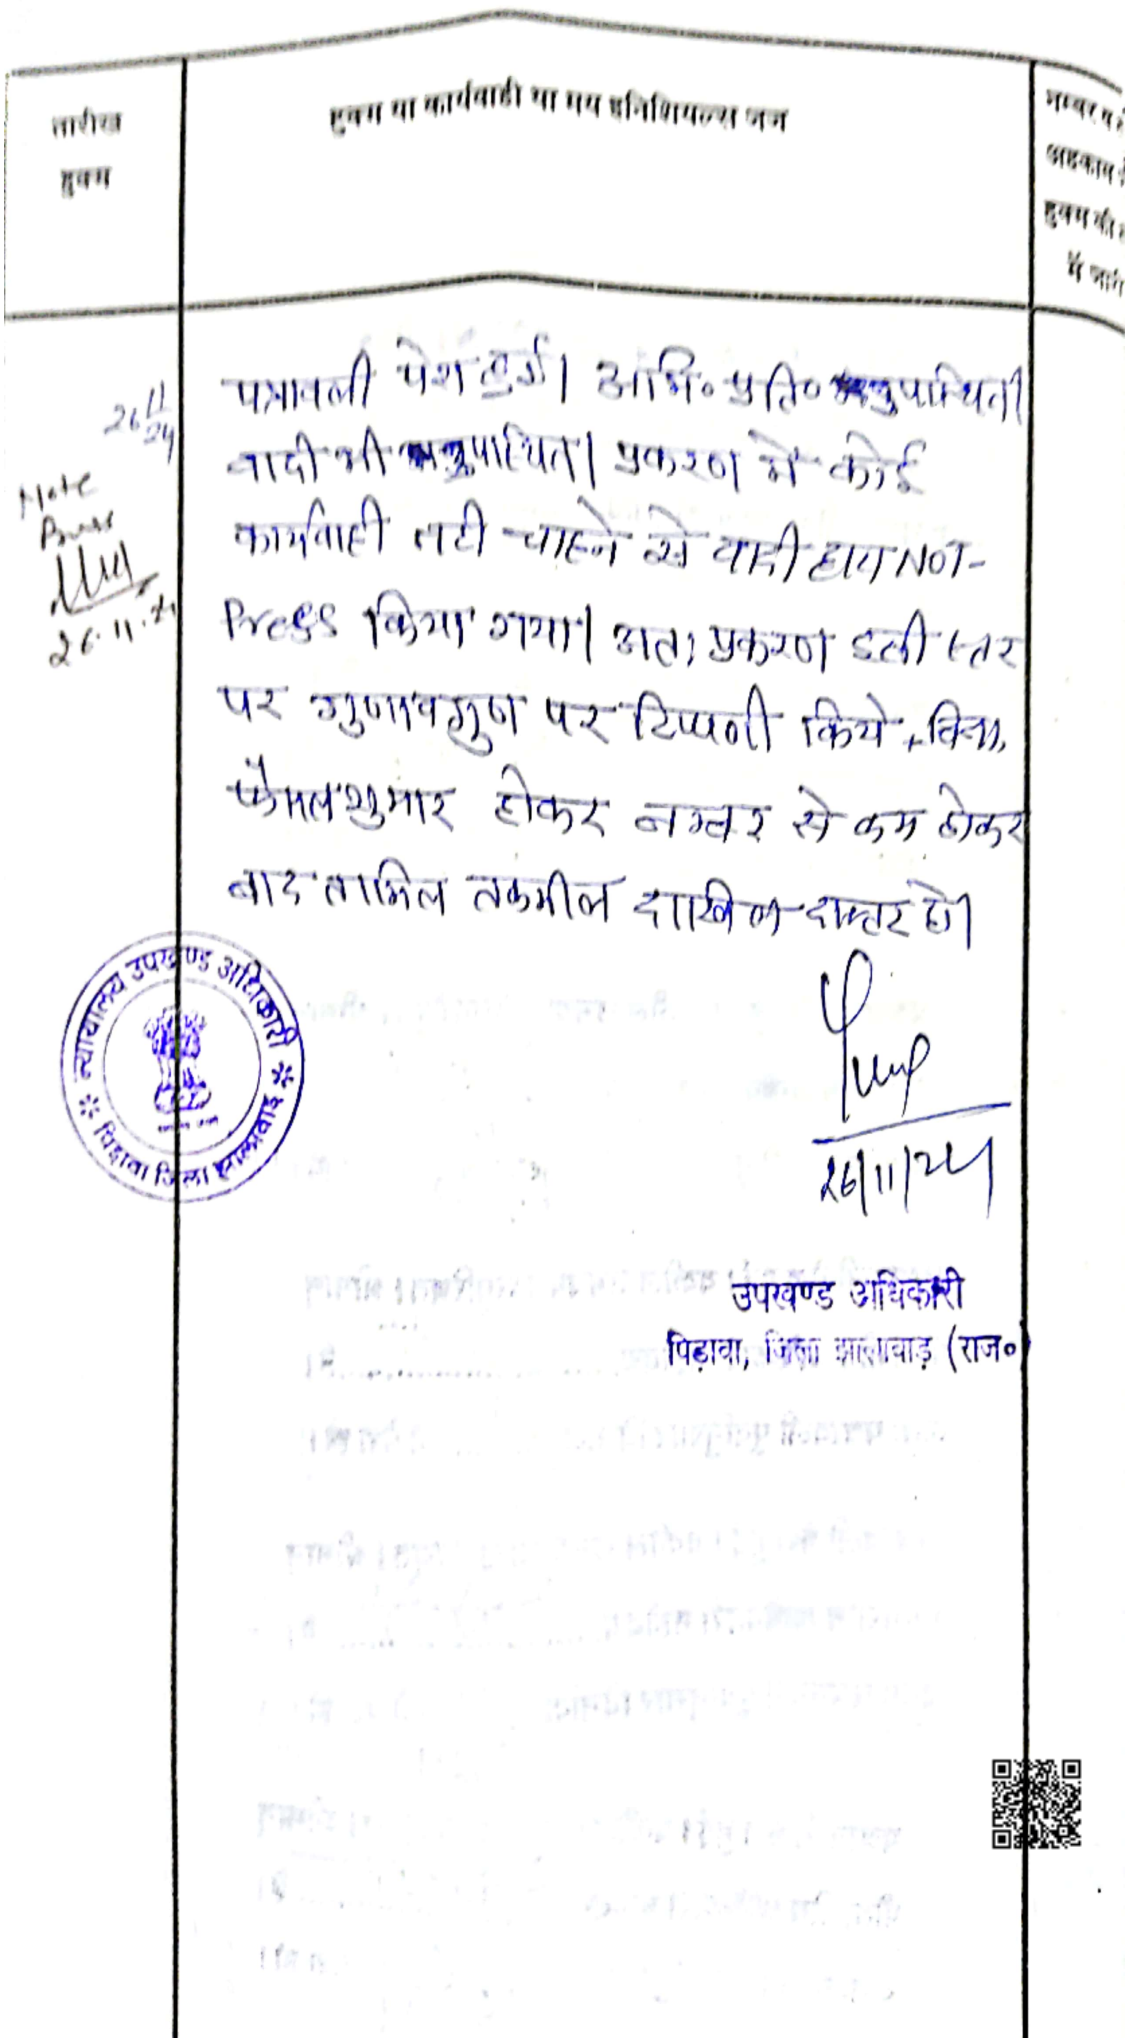 तारीख
हुक्म
हुक्म या कार्यवाही या मय इनिशियल्स जज
नम्बर व
अहकाम
हुक्म की
में जारी
26 11/24
पत्रावली पेश हुई। अभि० प्रति० अनुपस्थित।
वादी भी अनुपस्थित। प्रकरण में कोई
कार्यवाही नही चाहने से वादी द्वारा NOT-
Press किया गया। अतः प्रकरण इसी स्तर
पर गुणावगुण पर टिप्पणी किये बिना
फैसलशुमार होकर नम्बर से कम होकर
बाद तामिल तकमील दाखिल दफ्तर हो।
26.11.24
न्यायालय उपखण्ड अधिकारी
पिड़ावा जिला झालावाड़
26/11/24
उपखण्ड अधिकारी
पिड़ावा, जिला झालावाड़ (राज०)